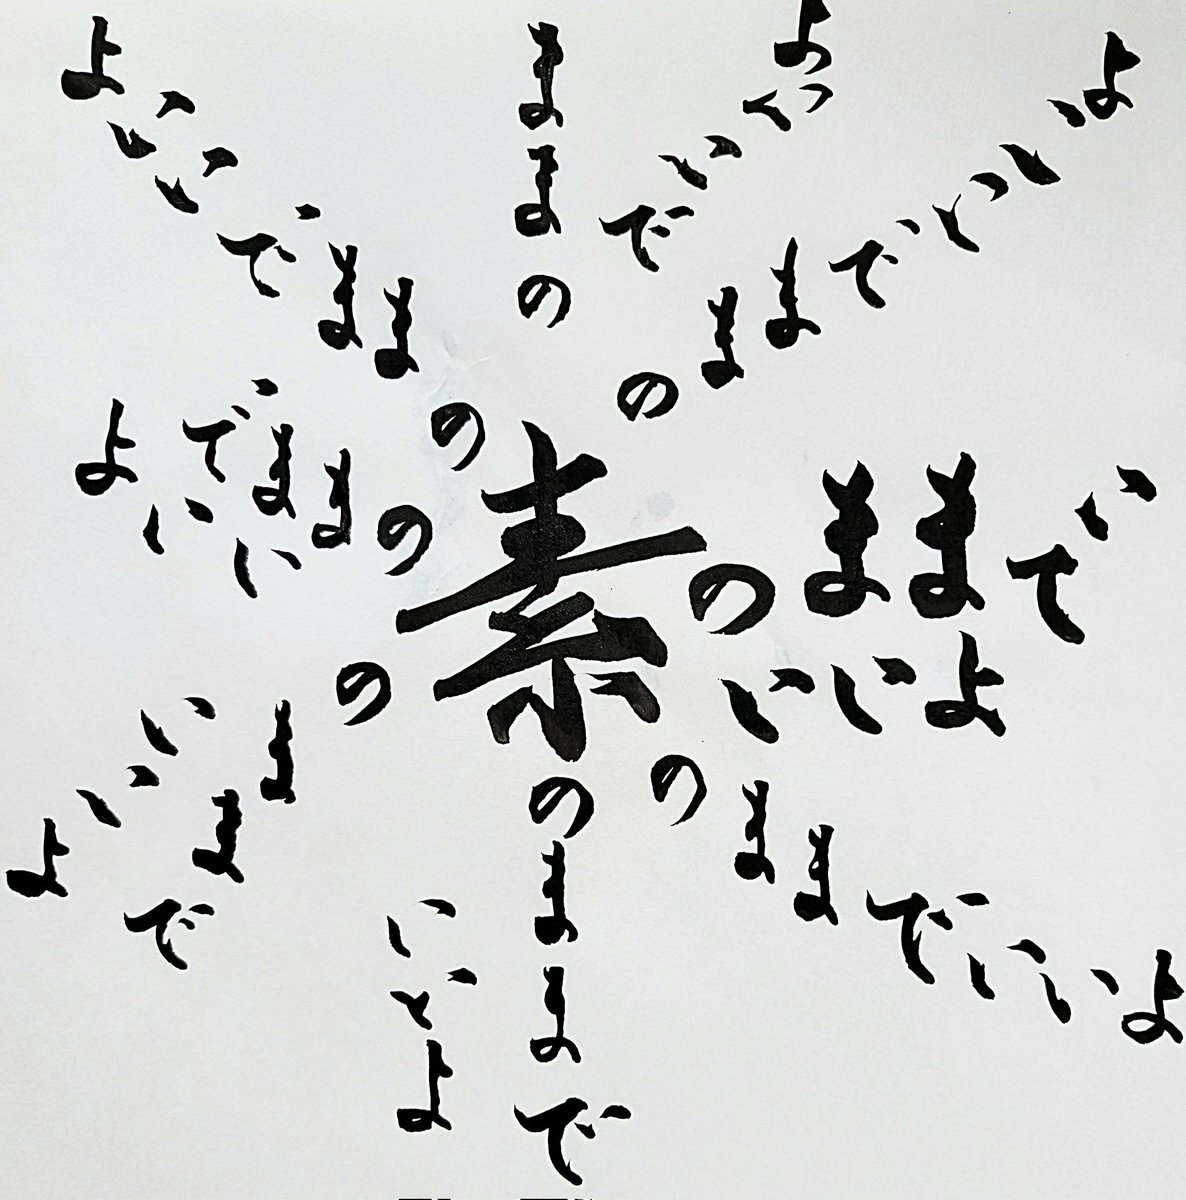 素のままでいいよ
のままでいいよ
のままでいいよ
のままでいいよ
のままでいいよ
のままでいいよ
のままでいいよ
のままでいいよ